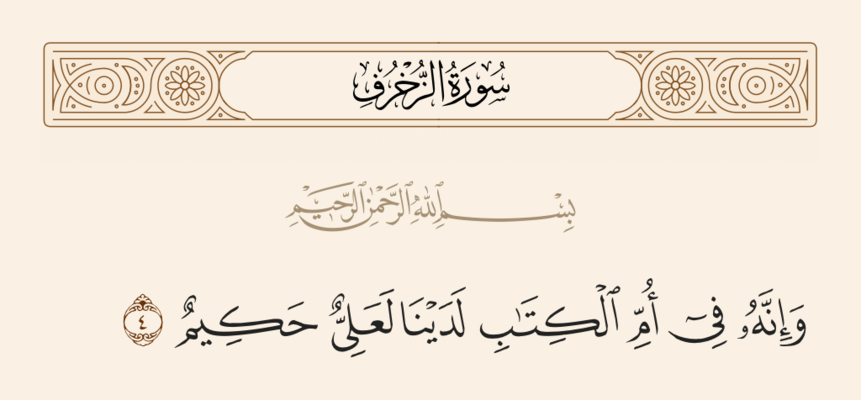 سُورَةُ الزُّخْرُفِ
بِسْمِ ٱللَّهِ ٱلرَّحْمَٰنِ ٱلرَّحِيمِ
وَإِنَّهُۥ فِىٓ أُمِّ ٱلْكِتَـٰبِ لَدَيْنَا لَعَلِىٌّ حَكِيمٌ ٤